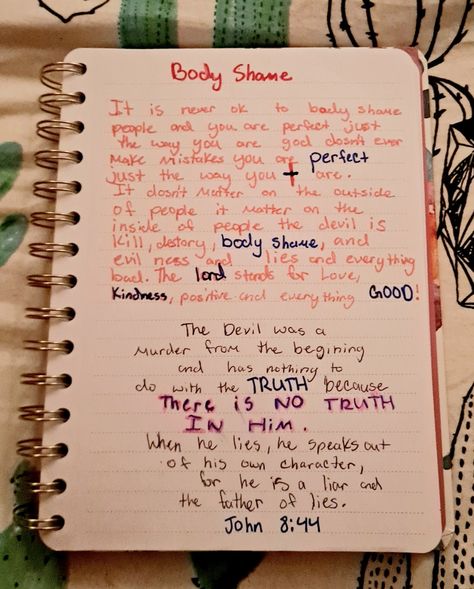 Body Shame
It is never ok to body shame
people and you are perfect just
the way you are god dosn't ever
make mistakes you are perfect
just the way you are.
It dosn't matter on the outside
of people it matter on the
inside of people the devil is
kill, destory, body shame, and
evil ness and lies and everything
bad. The lord stands for Love,
Kindness, positive and everything GOOD!
The Devil was a
murder from the begining
and has nothing to
do with the TRUTH because
There is NO TRUTH
IN HIM.
When he lies, he speaks out
of his own character,
for he is a liar and
the father of lies.
John 8:44